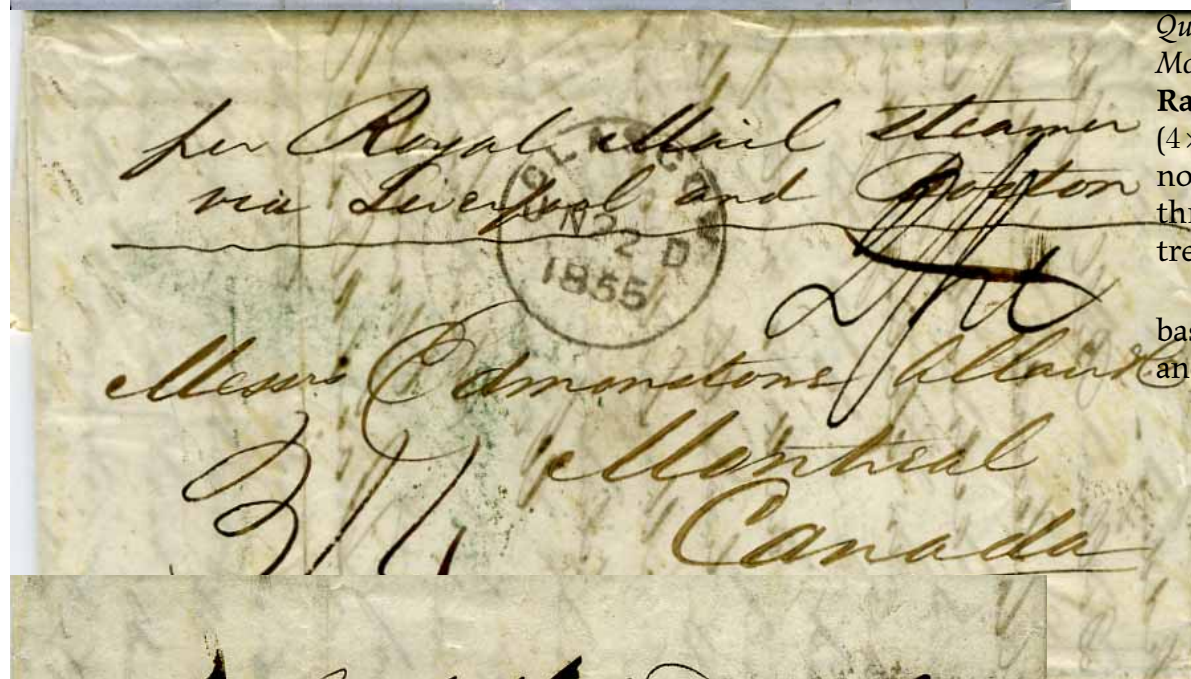 per Royal Mail Steamer
via Liverpool and Boston
GLASGOW
22 D
1855
Messrs Edmonstone Allan &
Montreal
Canada
Qu
Ma
Ra
(4×
no
thr
tre
bas
an